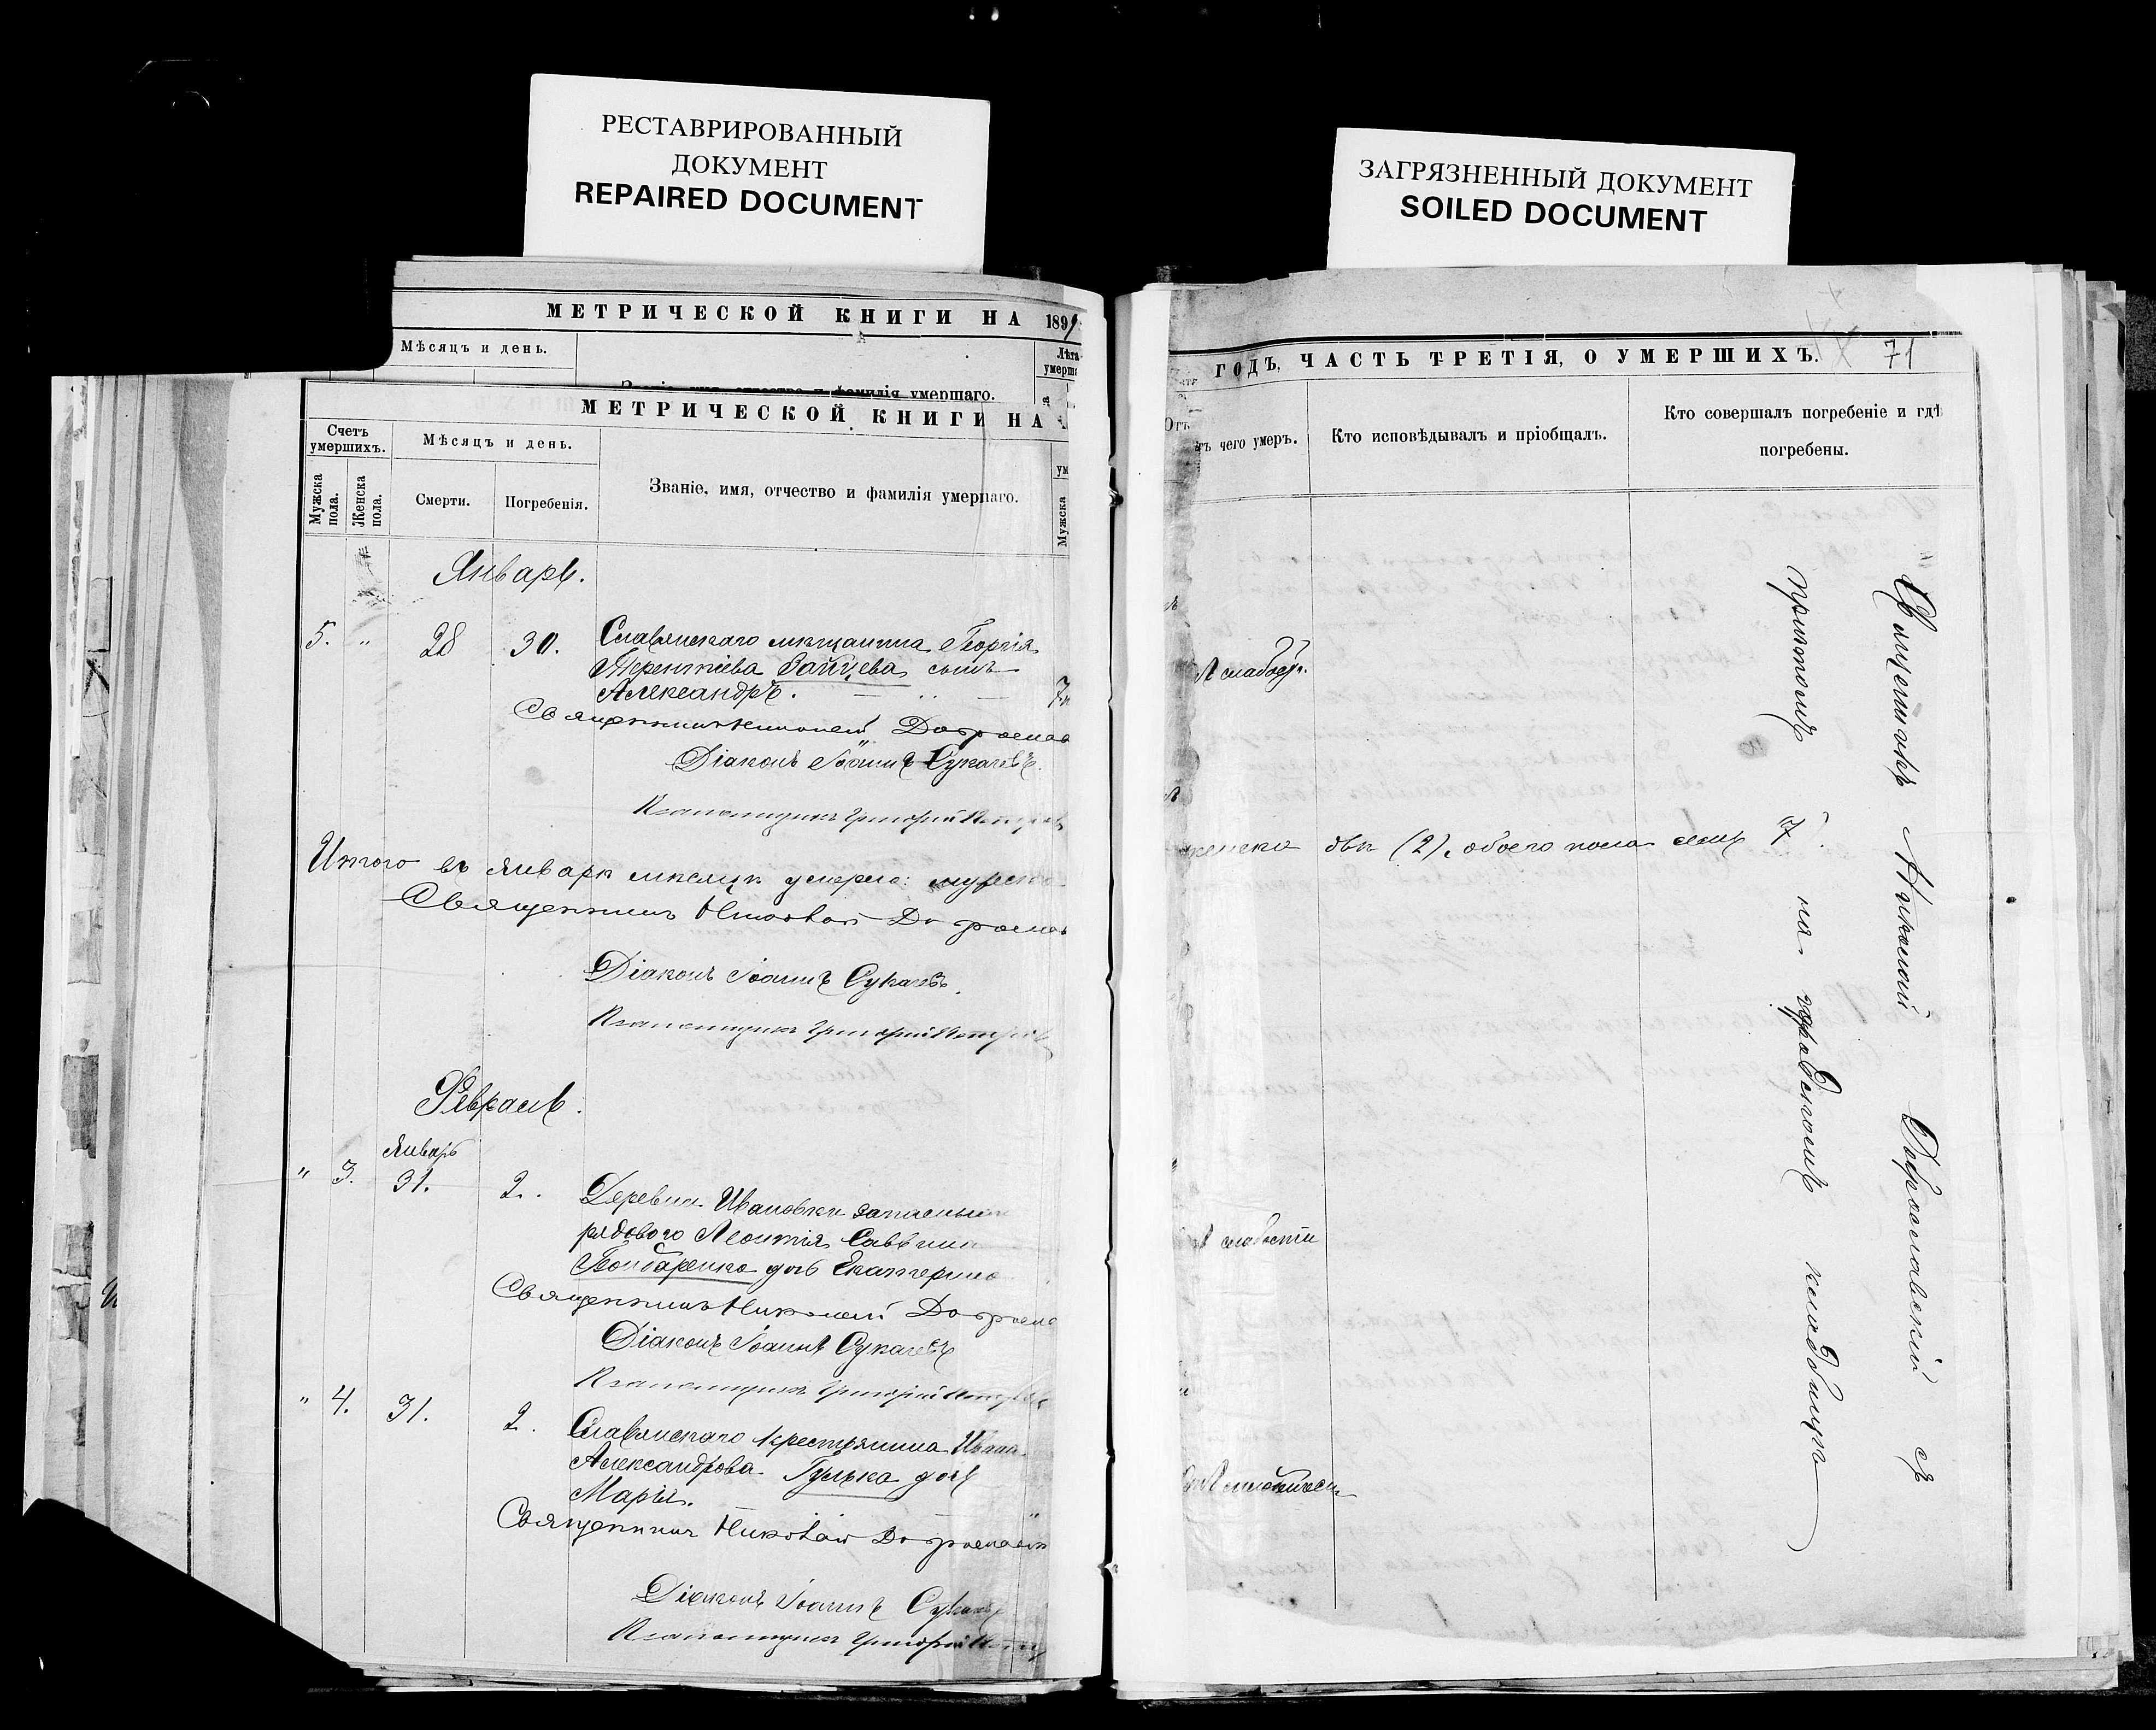 РЕСТАВРИРОВАННЫЙ
ДОКУМЕНТ
REPAIRED DOCUMENT
ЗАГРЯЗНЕННЫЙ ДОКУМЕНТ
SOILED DOCUMENT
МЕТРИЧЕСКОЙ КНИГИ НА 189
Мѣсяцъ и день.
Лѣта
фамилія умершаго.
МЕТРИЧЕСКОЙ КНИГИ НА
Счетъ умершихъ.
Мужска пола.
Женска пола.
Мѣсяцъ и день.
Смерти.
Погребенія.
Званіе, имя, отчество и фамилія умершаго.
Мужска
Январь.
5. " 28 30. Славянскаго мѣщанина Георгія
Терентіева Зайцева сынъ
Александръ.
Священникъ Николай Доброслав
Діаконъ Іоаннъ Сукачевъ.
Псаломщикъ Григорій Петров
Итого въ Январѣ мѣсяцѣ умерло: мужска
Священникъ Николай Доброслав
Діаконъ Іоаннъ Сукачевъ.
Псаломщикъ Григорій Петров
Февраль.
Январь
" 3. 31. 2. Деревни Ивановки
рядового Леонтія
Бондаренко дочь Екатерина
Священникъ Николай Доброслав
Діаконъ Іоаннъ Сукачевъ
Псаломщикъ Григорій Петров
" 4. 31. 2. Славянскаго крестьянина Ивана
Александрова Гулька дочь
Марія.
Священникъ Николай Доброславск
Діаконъ Іоаннъ Сукачевъ
Псаломщикъ Григорій
ГОДЪ, ЧАСТЬ ТРЕТІЯ, О УМЕРШИХЪ. 71
чего умеръ.
Кто исповѣдывалъ и пріобщалъ.
Кто совершалъ погребеніе и гдѣ
погребены.
женска двѣ (2), обоего пола семь 7.
слабости
Священникъ Николай Доброславскій съ
причтомъ на городскомъ кладбищѣ